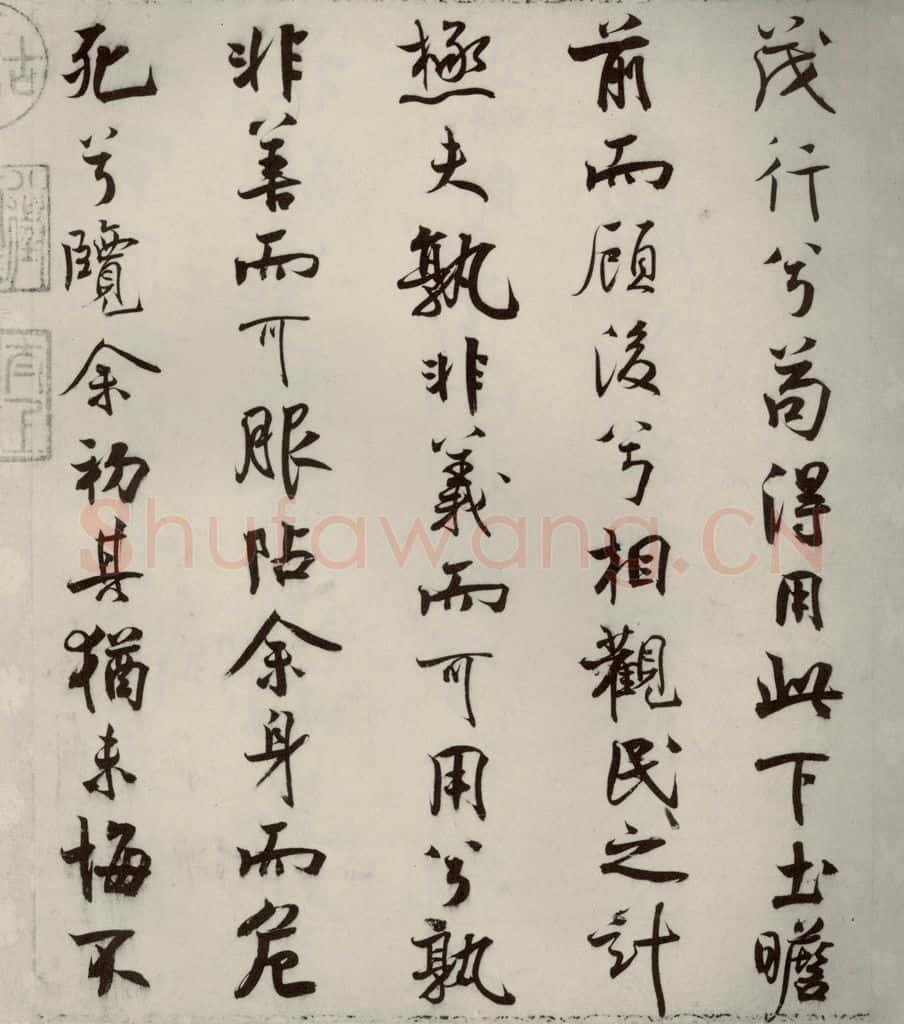 茂行兮苟得用此下土瞻
前而顧後兮相觀民之計
極夫孰非義而可用兮孰
非善而可服阽余身而危
死兮覽余初其猶未悔不
Shufawang.CN
古